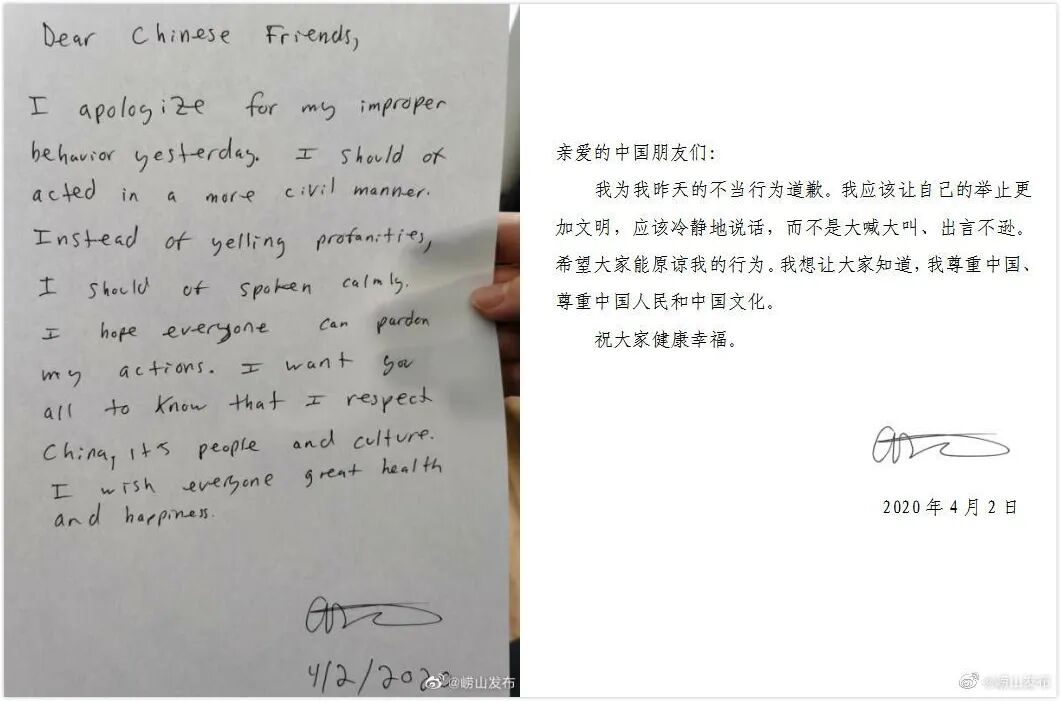 Dear Chinese Friends,
I apologize for my improper
behavior yesterday. I should of
acted in a more civil manner.
Instead of yelling profanities,
I should of spoken calmly.
I hope everyone can pardon
my actions. I want you
all to know that I respect
China, it's people and culture.
I wish everyone great health
and happiness.
4/2/2020
@崂山发布
亲爱的中国朋友们：
我为我昨天的不当行为道歉。我应该让自己的举止更
加文明，应该冷静地说话，而不是大喊大叫、出言不逊。
希望大家能原谅我的行为。我想让大家知道，我尊重中国、
尊重中国人民和中国文化。
祝大家健康幸福。
2020年4月2日
@崂山发布